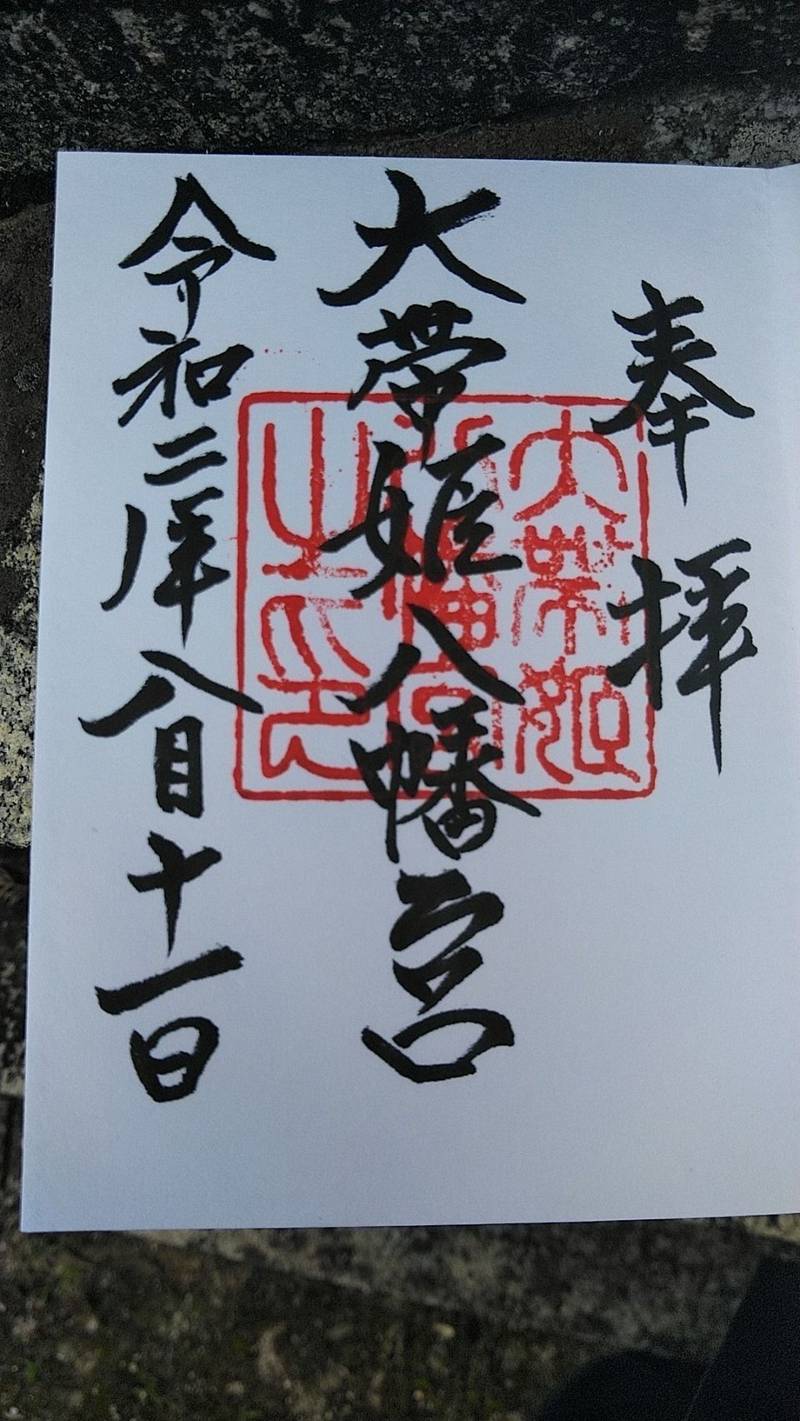 奉拝
大帯姫八幡宮
令和二年八月十一日
大帯姫
八幡宮
之印